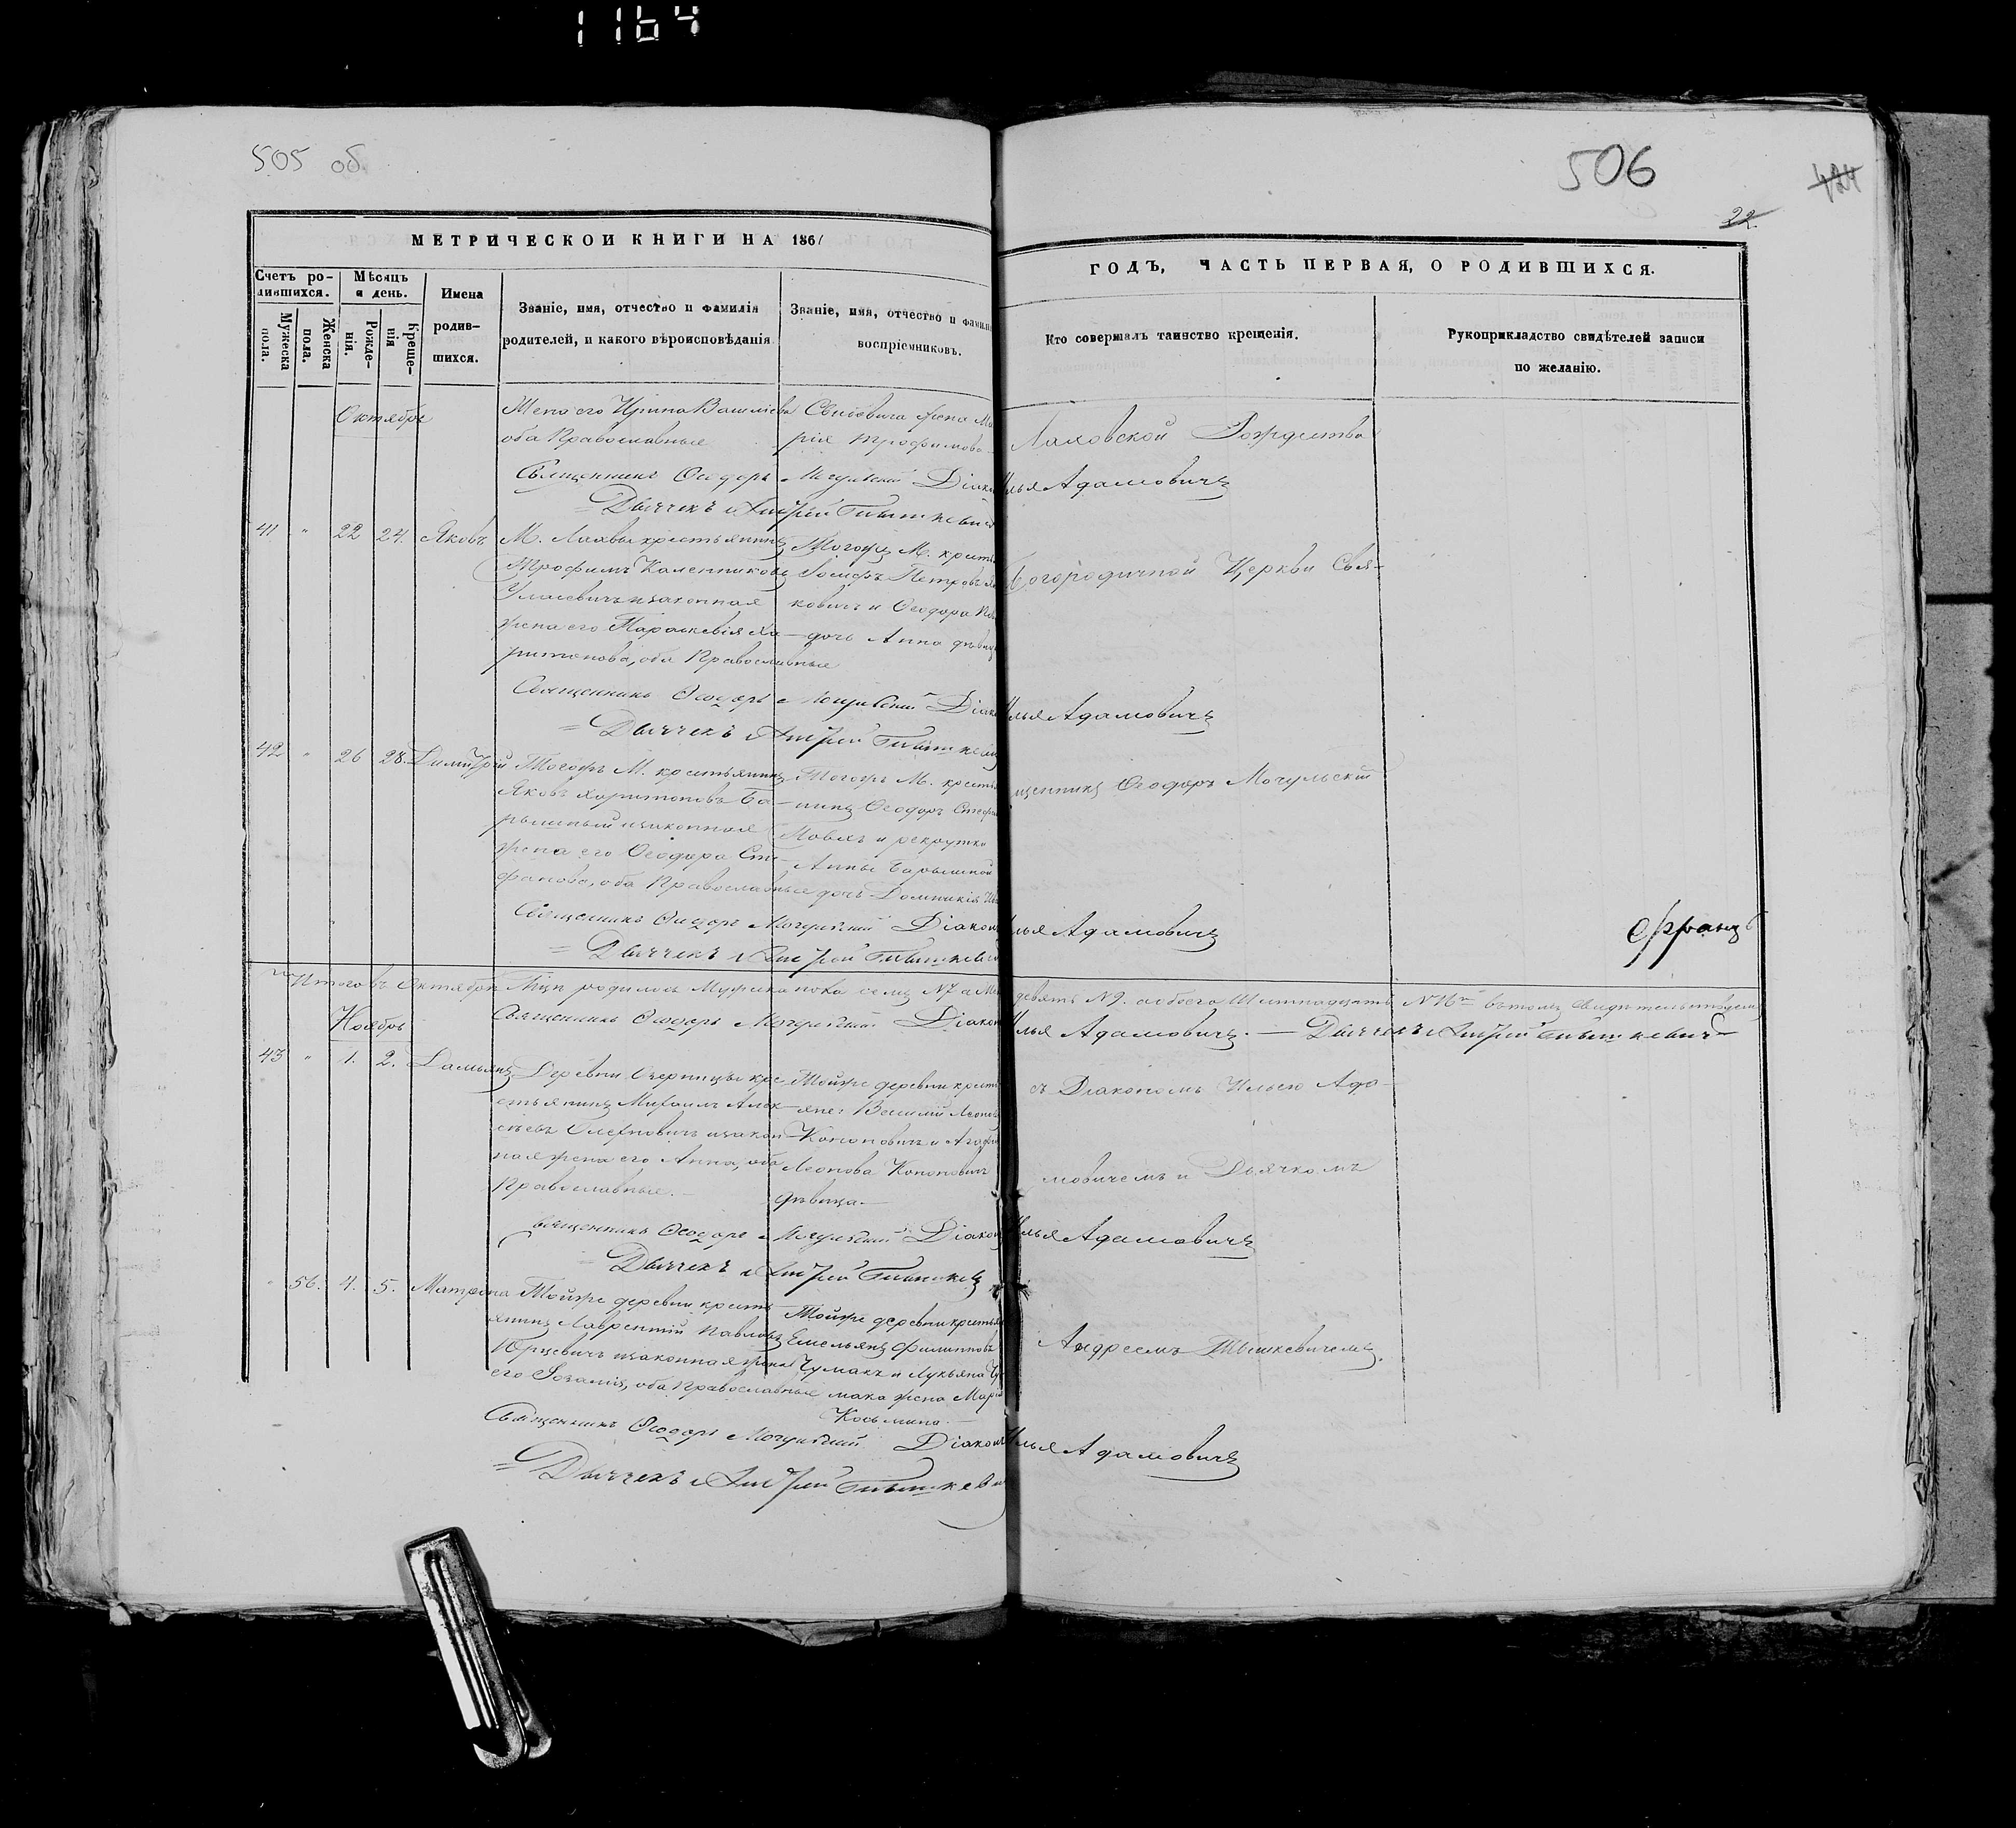 1164
505 об
506
424
22
МЕТРИЧЕСКОЙ КНИГИ НА 1861
ГОДЪ, ЧАСТЬ ПЕРВАЯ, О РОДИВШИХСЯ.
Счетъ ро-
дившихся.
Мужеска пола.
Женска пола.
Мѣсяцъ
и день.
Рожде-
нія.
Креще-
нія
Имена
родив-
шихся.
Званіе, имя, отчество и фамилія
родителей, и какого вѣроисповѣданія
Званіе, имя, отчество и фамилія
воспріемниковъ.
Кто совершалъ таинство крещенія.
Рукоприкладство свидѣтелей записи
по желанію.
Октябрь
Жена его Ирина Василіева
оба Православные
жена Ма
рія Трофимова
Лаховской Рождество
Священникъ Ѳеодоръ Мочульскій Діако Илья Адамовичъ
Дьячекъ Андрей Тышкевич
41 " 22 24. Яковъ
М. Лахвы крестьянинъ
Трофимъ Каленниковъ
и законная
жена его Параскевія Ха-
ритонова, оба Православные
Тогожъ М. крестья
Іосифъ Петровъ
ковичъ и Ѳеодора
дочь Анна дѣвица
Богородичной Церкви Свя-
Священникъ Ѳеодоръ Мочульскій Діако Илья Адамовичъ
Дьячекъ Андрей Тышкевич
42 " 26 28. Димитрій
Тогожъ М. крестьянинъ
Яковъ Харитоновъ Ба-
рышный и законная
жена его Ѳеодора Сте-
фанова, оба Православные
Тогожъ М. крестья
нинъ Ѳеодоръ Стефан
и рекрутка
Анны Барышной
дочь Домникія
щенникъ Ѳеодоръ Мочульскій
Священникъ Ѳеодоръ Мочульскій Діакон Илья Адамовичъ
Дьячекъ Андрей Тышкевич
Францъ
Итого въ Октябрѣ М-цѣ родилось Мужеска пола семь N7 а девять N9. а обоего Шестнадцать N16 въ томъ свидѣтельствуемъ
Священникъ Ѳеодоръ Мочульскій Діакон Илья Адамовичъ. — Дьячекъ Андрей Тышкевичъ
Ноябрь
43 " 1. 2. Даміянъ
Деревни крe
стьянинъ Михаилъ Алек-
сѣевъ и закон
ная жена его Анна, оба
Православные. —
Тойже деревни крест
Василій Леонов
Кононовичъ и Агафія
Леонова Кононовичъ
дѣвица —
съ Діакономъ Ильею Ада-
мовичемъ и Дьячкомъ
Священникъ Ѳеодоръ Мочульскій Діакон Илья Адамовичъ
Дьячекъ Андрей Тышкев
" 56. 4. 5. Матрона
Тойже деревни кресть
янинъ Лаврентій Павловъ
Юрцевичъ и законная жена
его оба Православные
Тойже деревни крестья
Емельянъ Филипповъ
Чумакъ и Лукьяна Чу
мака жена Марія
Косьмина —
Андреемъ Тышкевичемъ.
Священникъ Ѳеодоръ Мочульскій Діаконъ Илья Адамовичъ
Дьячекъ Андрей Тышкеви